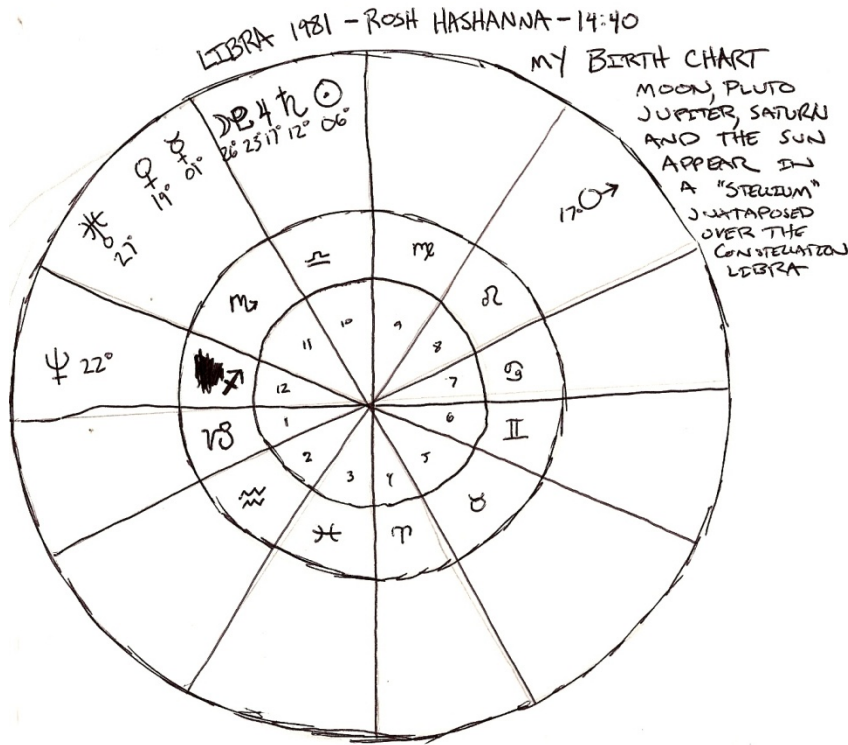 LIBRA 1981 - ROSH HASHANNA - 14:40
MY BIRTH CHART
MOON, PLUTO
JUPITER, SATURN
AND THE SUN
APPEAR IN
A "STELLIUM"
JUXTAPOSED
OVER THE
CONSTELLATION
LIBRA
☽ ♇ ♃ ♄ ☉
26° 23° 17° 12° 06°
♅ ♀ ☿
27° 19° 01°
17° ♂
♆ 22°
♎ ♍
♏ ♌
♐ ♋
♑ ♊
♒ ♉
♓ ♈
10 9
11 8
12 7
1 6
2 5
3 4